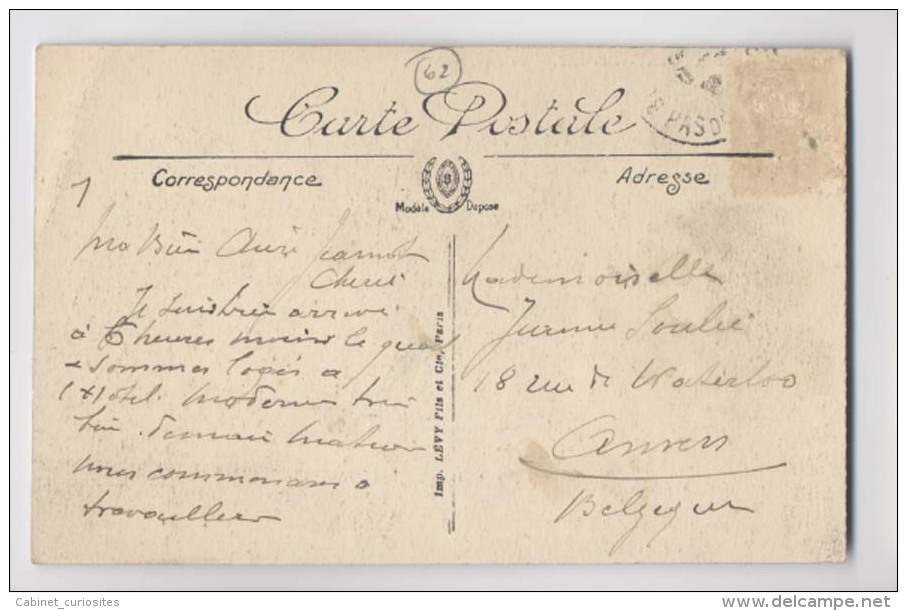 62
PAS D
Carte Postale
Correspondance
Adresse
8
Modèle Déposé
1
mo Bien Aimé
Cherie
Je suis bien arrivé
à 6 heures moins le quart
sommes logés a
l'Hotel Moderne très
bien. demain matin
nous commencons a
travailler
Imp. LÉVY Fils et Cie, Paris
Mademoiselle
18 rue de Waterloo
Anvers
Belgique
Cabinet_curiosites
delcampe.net